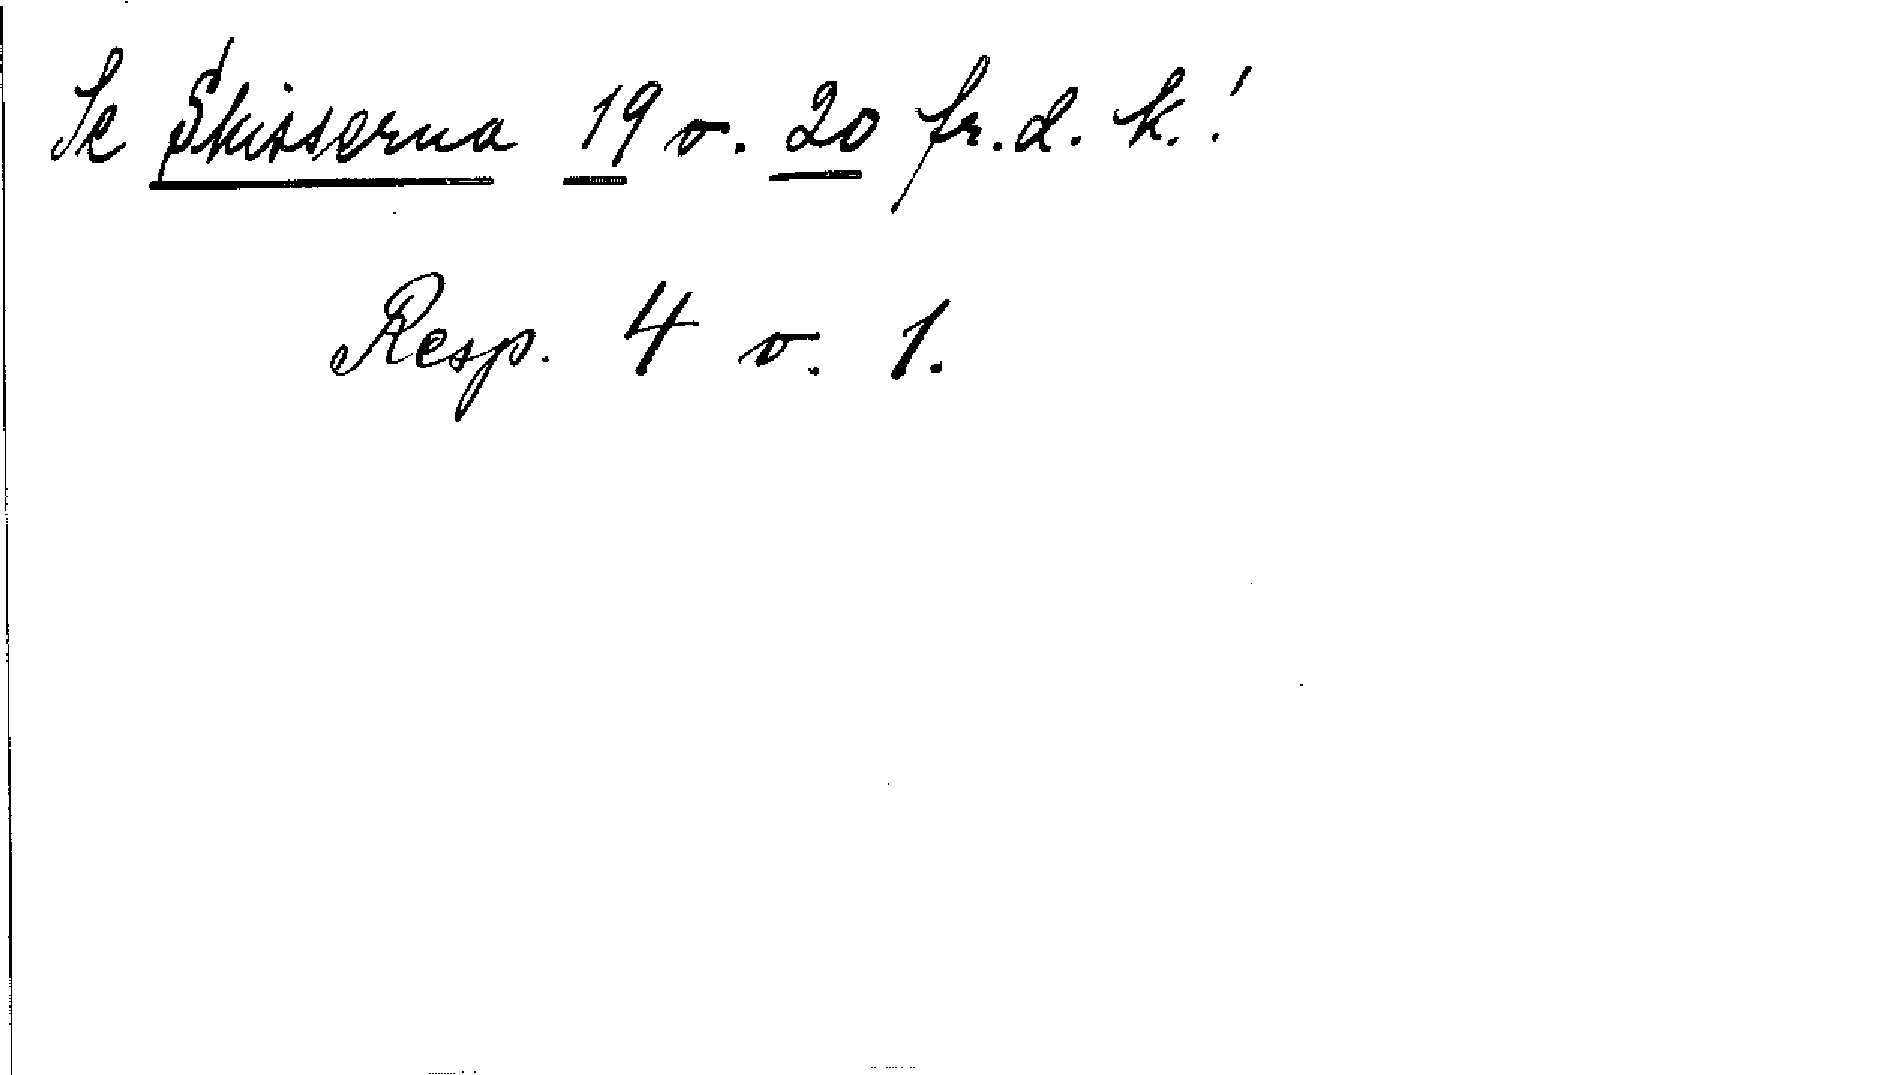 Se Skisserna 19 o. 20 fr. d. k.!
Resp. 4 o. 1.